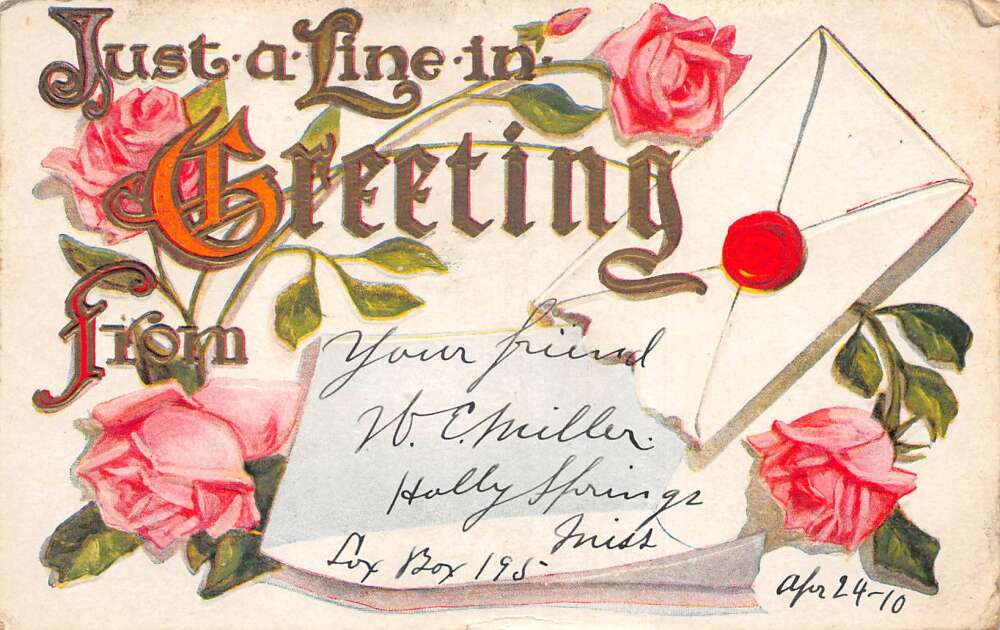 Just·a·Line·in·
Greeting
from
Your friend
W. E. Miller.
Holly Springs
Miss
Lox Box 195
Apr 24-10